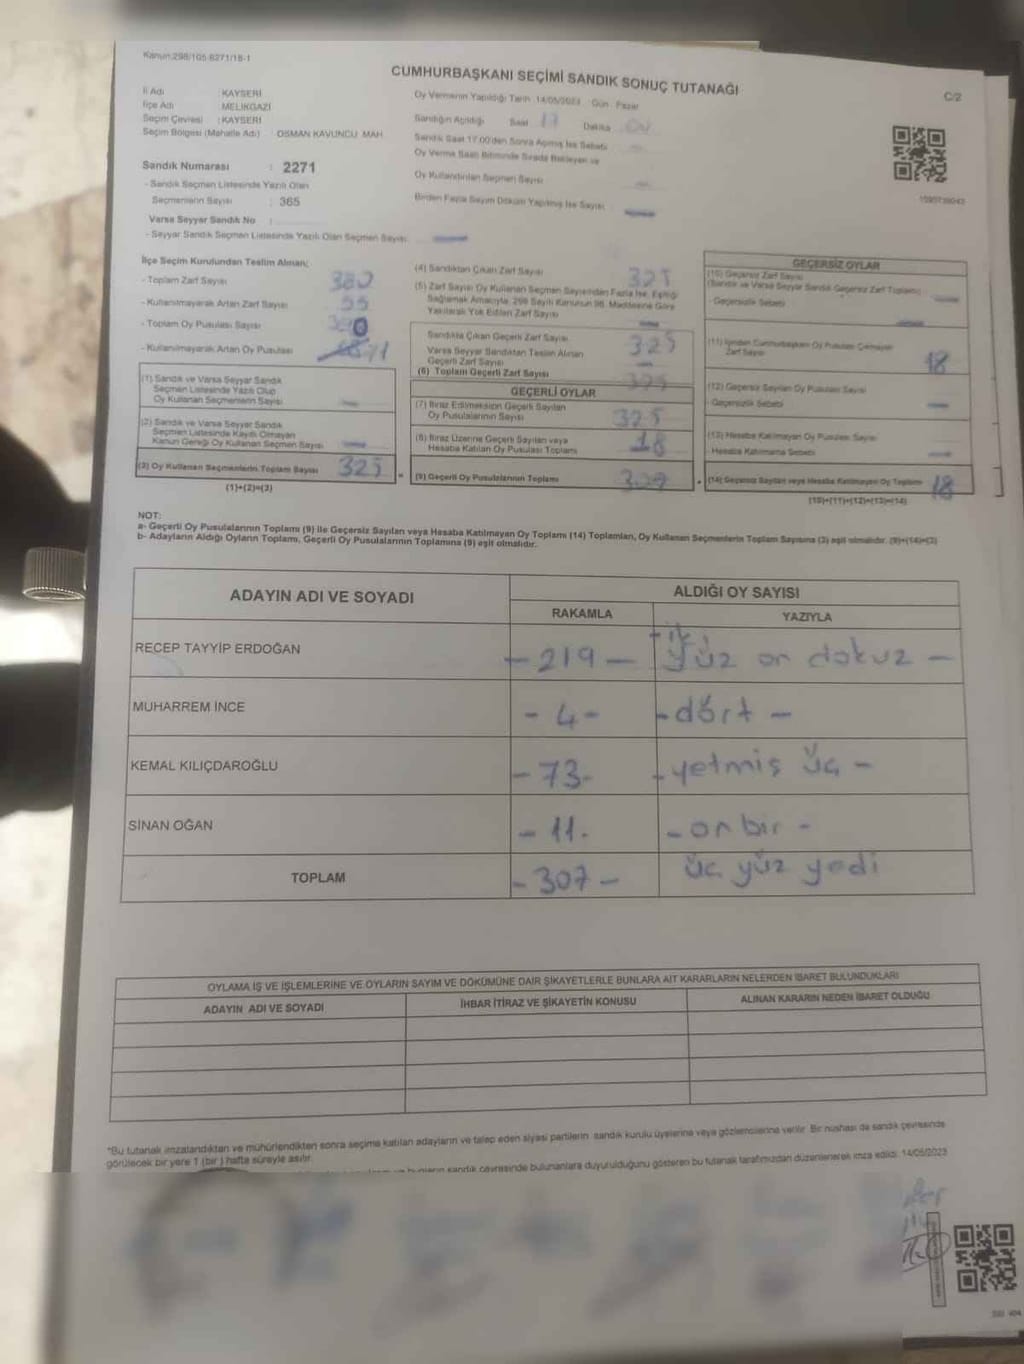 Kanun:298/105-6271/18-1
CUMHURBAŞKANI SEÇİMİ SANDIK SONUÇ TUTANAĞI
C/2
İl Adı KAYSERİ
İlçe Adı MELİKGAZİ
Seçim Çevresi : KAYSERİ
Seçim Bölgesi (Mahalle Adı) : OSMAN KAVUNCU MAH.
Sandık Numarası : 2271
- Sandık Seçmen Listesinde Yazılı Olan
Seçmenlerin Sayısı : 365
Varsa Seyyar Sandık No :
- Seyyar Sandık Seçmen Listesinde Yazılı Olan Seçmen Sayısı:
Oy Vermenin Yapıldığı Tarih 14/05/2023 Gün : Pazar
Sandığın Açıldığı Saat 17 Dakika
Sandık Saat 17.00'den Sonra Açılmış İse Sebebi
Oy Verme Saati Bitiminde Sırada Bekleyen ve
Oy Kullandırılan Seçmen Sayısı
Birden Fazla Sayım Döküm Yapılmış İse Sayısı
İlçe Seçim Kurulundan Teslim Alınan;
- Toplam Zarf Sayısı 380
- Kullanılmayarak Artan Zarf Sayısı 55
- Toplam Oy Pusulası Sayısı
- Kullanılmayarak Artan Oy Pusulası
(1) Sandık ve Varsa Seyyar Sandık
Seçmen Listesinde Yazılı Olup
Oy Kullanan Seçmenlerin Sayısı
(2) Sandık ve Varsa Seyyar Sandık
Seçmen Listesinde Kayıtlı Olmayan
Kanun Gereği Oy Kullanan Seçmen Sayısı
(3) Oy Kullanan Seçmenlerin Toplam Sayısı 325
(1)+(2)=(3)
(4) Sandıktan Çıkan Zarf Sayısı 325
(5) Zarf Sayısı Oy Kullanan Seçmen Sayısından Fazla İse, Eşitliği
Sağlamak Amacıyla, 298 Sayılı Kanunun 98. Maddesine Göre
Yakılarak Yok Edilen Zarf Sayısı
Sandıkta Çıkan Geçerli Zarf Sayısı 325
Varsa Seyyar Sandıktan Teslim Alınan
Geçerli Zarf Sayısı
(6) Toplam Geçerli Zarf Sayısı 325
GEÇERLİ OYLAR
(7) İtiraz Edilmeksizin Geçerli Sayılan
Oy Pusulalarının Sayısı 325
(8) İtiraz Üzerine Geçerli Sayılan veya
Hesaba Katılan Oy Pusulası Toplamı 18
(9) Geçerli Oy Pusulalarının Toplamı
GEÇERSİZ OYLAR
(10) Geçersiz Zarf Sayısı
(Sandık ve Varsa Seyyar Sandık Geçersiz Zarf Toplamı)
- Geçersizlik Sebebi
(11) İçinden Cumhurbaşkanı Oy Pusulası Çıkmayan
Zarf Sayısı 18
(12) Geçersiz Sayılan Oy Pusulası Sayısı
- Geçersizlik Sebebi
(13) Hesaba Katılmayan Oy Pusulası Sayısı
- Hesaba Katılmama Sebebi
(14) Geçersiz Sayılan veya Hesaba Katılmayan Oy Toplamı 18
(10)+(11)+(12)+(13)=(14)
NOT:
a- Geçerli Oy Pusulalarının Toplamı (9) ile Geçersiz Sayılan veya Hesaba Katılmayan Oy Toplamı (14) Toplamları, Oy Kullanan Seçmenlerin Toplam Sayısına (3) eşit olmalıdır. (9)+(14)=(3)
b- Adayların Aldığı Oyların Toplamı, Geçerli Oy Pusulalarının Toplamına (9) eşit olmalıdır.
ADAYIN ADI VE SOYADI
ALDIĞI OY SAYISI
RAKAMLA YAZIYLA
RECEP TAYYİP ERDOĞAN - 219 - - iki yüz on dokuz -
MUHARREM İNCE - 4 - - dört -
KEMAL KILIÇDAROĞLU - 73 - - yetmiş üç -
SİNAN OĞAN - 11 - - on bir -
TOPLAM - 307 - üç yüz yedi
OYLAMA İŞ VE İŞLEMLERİNE VE OYLARIN SAYIM VE DÖKÜMÜNE DAİR ŞİKAYETLERLE BUNLARA AİT KARARLARIN NELERDEN İBARET BULUNDUKLARI
ADAYIN ADI VE SOYADI İHBAR İTİRAZ VE ŞİKAYETİN KONUSU ALINAN KARARIN NEDEN İBARET OLDUĞU
*Bu tutanak imzalandıktan ve mühürlendikten sonra seçime katılan adayların ve talep eden siyasi partilerin sandık kurulu üyelerine veya gözlemcilerine verilir. Bir nüshası da sandık çevresinde
görülecek bir yere 1 (bir) hafta süreyle asılır.
sandık çevresinde bulunanlara duyurulduğunu gösteren bu tutanak tarafımızdan düzenlenerek imza edildi. 14/05/2023